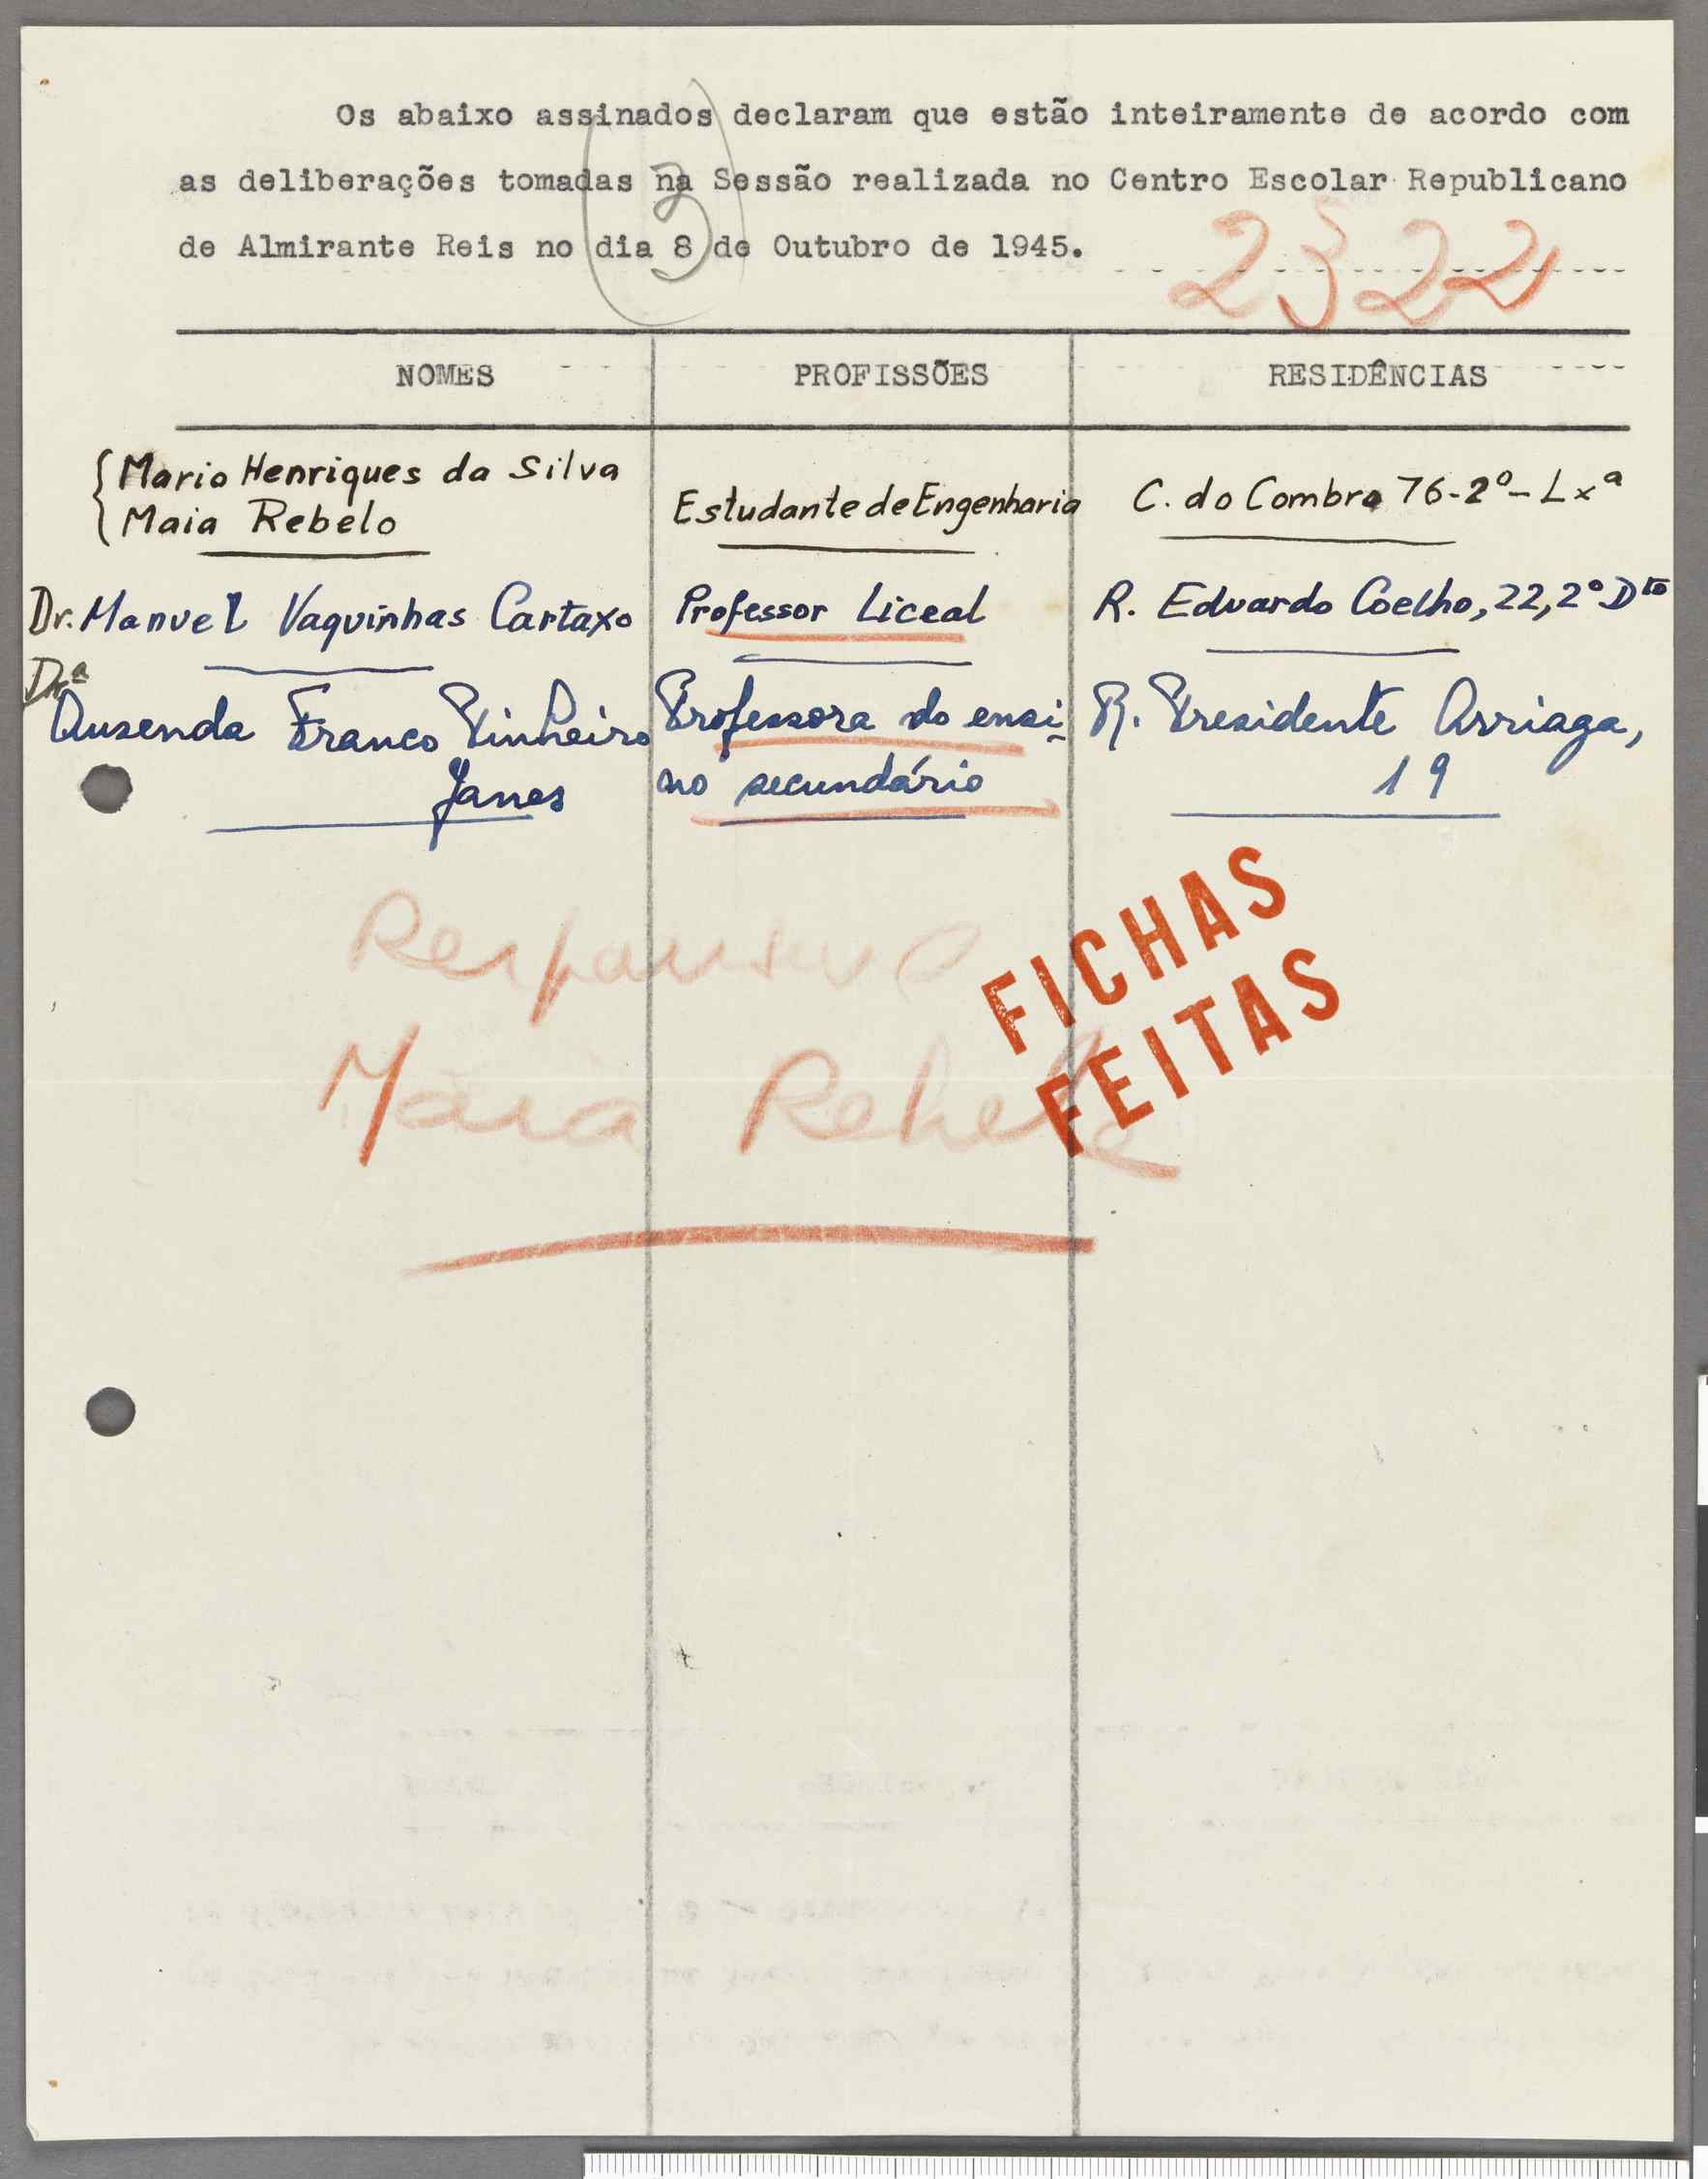 Os abaixo assinados declaram que estão inteiramente de acordo com
as deliberações tomadas na Sessão realizada no Centro Escolar Republicano
de Almirante Reis no dia 8 de Outubro de 1945.
3
2322
NOMES PROFISSÕES RESIDÊNCIAS
Mario Henriques da Silva
Maia Rebelo Estudante de Engenharia C. do Combro 76-2º-Lxª
Dr. Manuel Vaquinhas Cartaxo Professor Liceal R. Eduardo Coelho, 22, 2º Dto
Drª
Ausenda Franco Pinheiro Professora do ensi- R. Presidente Arriaga,
Janes no secundário 19
Maia Rebelo
FICHAS
FEITAS